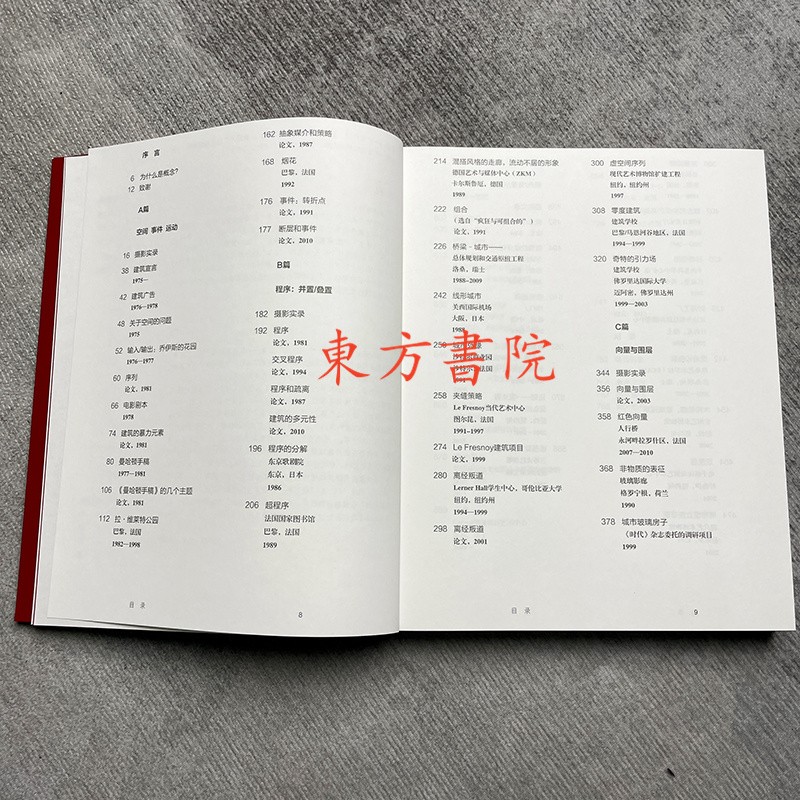 序 言
6 为什么是概念?
12 致谢
A篇
空间 事件 运动
16 摄影实录
38 建筑宣言
1975—
42 建筑广告
1976—1978
48 关于空间的问题
1975
52 输入/输出:乔伊斯的花园
1976—1977
60 序列
论文,1981
66 电影剧本
1978
74 建筑的暴力元素
论文,1981
80 曼哈顿手稿
1977—1981
106 《曼哈顿手稿》的几个主题
论文,1981
112 拉·维莱特公园
巴黎,法国
1982—1998
162 抽象媒介和策略
论文,1987
168 烟花
巴黎,法国
1992
176 事件:转折点
论文,1991
177 断层和事件
论文,2010
B篇
程序:并置/叠置
182 摄影实录
192 程序
论文,1981
交叉程序
论文,1994
程序和疏离
论文,1987
建筑的多元性
论文,2010
196 程序的分解
东京歌剧院
东京,日本
1986
206 超程序
法国国家图书馆
巴黎,法国
1989
目 录
8
214 混搭风格的走廊,流动不居的形象
德国艺术与媒体中心(ZKM)
卡尔斯鲁厄,德国
1989
222 组合
(选自“疯狂与可组合的”)
论文,1991
226 桥梁·城市——
总体规划和交通枢纽工程
洛桑,瑞士
1988—2009
242 线形城市
关西国际机场
大阪,日本
1988
258 夹缝策略
Le Fresnoy当代艺术中心
图尔昆,法国
1991—1997
274 Le Fresnoy建筑项目
论文,1999
280 离经叛道
Lerner Hall学生中心,哥伦比亚大学
纽约,纽约州
1994—1999
298 离经叛道
论文,2001
300 虚空间序列
现代艺术博物馆扩建工程
纽约,纽约州
1997
308 零度建筑
建筑学校
巴黎/马恩河谷地区,法国
1994—1999
320 奇特的引力场
建筑学校
佛罗里达国际大学
迈阿密,佛罗里达州
1999—2003
C篇
向量与围层
344 摄影实录
356 向量与围层
论文,2003
358 红色向量
人行桥
永河畔拉罗什区,法国
2007—2010
368 非物质的表征
玻璃影廊
格罗宁根,荷兰
1990
378 城市玻璃房子
《时代》杂志委托的调研项目
1999
目 录
9
東方書院